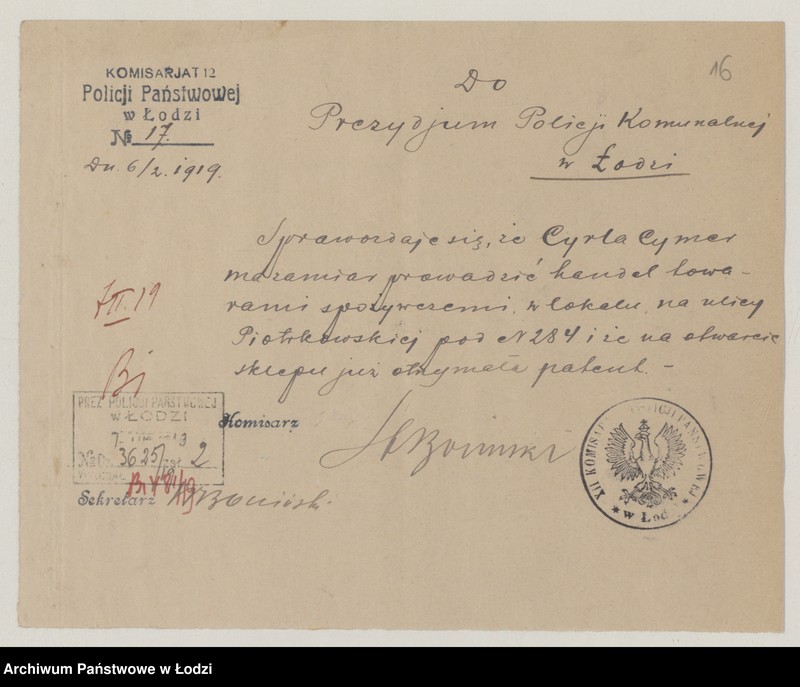 16
KOMISARJAT 12
Policji Państwowej
w Łodzi
№ 17.
Dn. 6/2. 1919.
Do
Prezydjum Policji Komunalnej
w Łodzi
Sprawozdaje się, że Cyrla Cymer
ma zamiar prowadzić handel towa-
rami spożywczemi, w lokalu, na ulicy
Piotrkowskiej pod № 284 i że na otwarcie
sklepu już otrzymała patent. –
7 II. 19
Bj
PREZ. POLICJI PAŃSTWOWEJ
w ŁODZI
№ 3625/ 2
Komisarz
Sekretarz
XII KOMISAR POLICJI PAŃSTWOWEJ
* w Łodzi *
Archiwum Państwowe w Łodzi